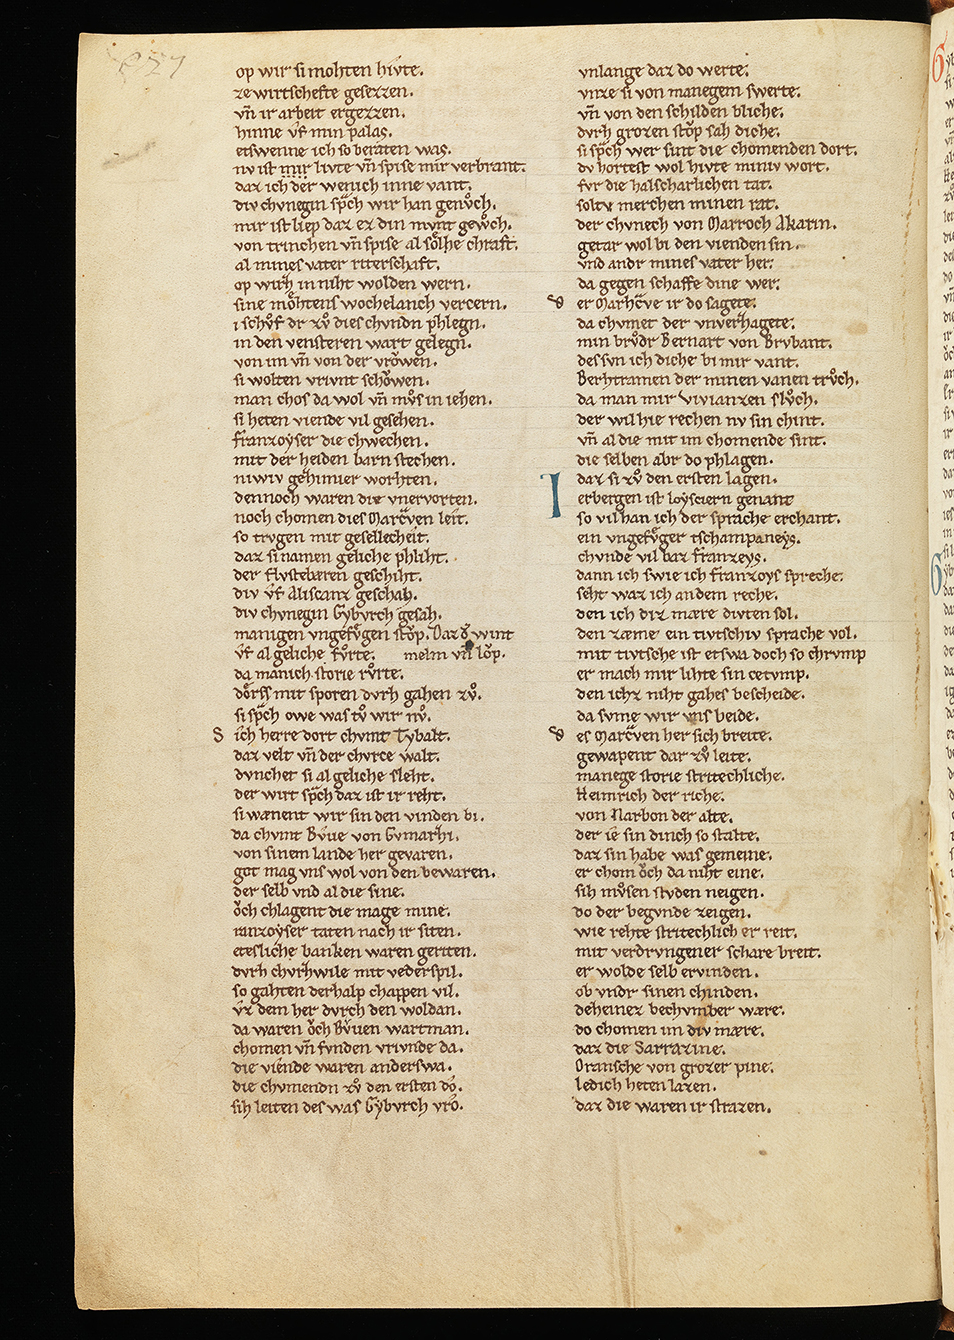 op wir si mohten hivte.
ze wirtschefte gesezzen.
vn̄ ir arbeit ergezzen.
hinne v̂f min palas.
etswenne ich so beraten was.
nv ist mir livte vn̄ spise mir verbrant.
daz ich der wenich inne vant.
div chvnegin sp̃ch wir han genv̊ch.
mir ist liep daz ez din mvnt gewv̊ch.
von trinchen vn̄ spise al sölhe chraft.
al mines vater riterschaft.
op wirh in niht wolden wern.
sine möhtens wochelanch verzern.
i schv̊f dr zv̊ dies chvndn phlegn.
in den vensteren wart gelegn.
von im vn̄ von der vrŏwen.
si wolten vrivnt schŏwen.
man chos da wol vn̄ mv̊s in iehen.
si heten viende vil gesehen.
franzoyser die chwechen.
mit der heiden barn stechen.
niwiv gehimier worhten.
dennoch waren die vnervorten.
noch chomen dies Marc̃ven leit.
so trvgen mit gesellecheit.
daz si namen geliche phliht.
der flvstebæren geschiht.
div v̂f Aliscanz geschah.
div chvnegin Gybvrch gesah.
manigen vngefv̊gen stŏp. Daz d̾ wint
v̂f al geliche fv̊rte. melm vn̄ lŏp.
da manich storie rv̊rte.
dŏrss mit sporen dvrh gahen zv̊.
si sp̃ch owe was tv̊ wir nv̊.
S ich herre dort chvmt Tybalt.
daz velt vn̄ der chvrce walt.
dvnchet si al geliche sleht.
der wirt sp̃ch daz ist ir reht.
si wænent wir sin den vinden bi.
da chvmt Bv̊ue von Cvmarhi.
von sinem lande her gevaren.
got mag vns wol von den bewaren.
der selb vnd al die sine.
ŏch chlagent die mage mine.
ranzoyser taten nach ir siten.
etesliche banken waren geriten.
dvrh chvrhwile mit vederspil.
so gahten derhalp chappen vil.
v̂z dem her dvrch den woldan.
da waren ŏch Bv̊uen wartman.
chomen vn̄ fvnden vrivnde da.
die viende waren anderswa.
die chvmendn zv̊ den ersten do.
sih leiten des was Gybvrch vro.
vnlange daz do werte.
vnze si von manegem swerte.
vn̄ von den schilden bliche.
dvrh grozen stŏp sah diche.
si sp̃ch wer sint die chomenden dort.
dv hortest wol hivte miniv wort.
fvr die halscharlichen tat.
soltv merchen minen rat.
der chvnech von Marroch Akarin.
getar wol bi den vienden sin.
vnd andr mines vater her.
da gegen schaffe dine wer.
D er Marhc̃ve ir do sagete.
da chvmet der vnverhagete.
min brv̊dr Bernart von Brvbant.
des svn ich diche bi mir vant.
Berhtramen der minen vanen trv̊ch.
da man mir Vivianzen slv̊ch.
der wil hie rechen nv sin chint.
vn̄ al die mit im chomende sint.
die selben abr do phlagen.
daz si zv̊ den ersten lagen.
I erbergen ist loysciern genant
so vil han ich der sprache erchant.
ein vngefv̊ger tschampaneys.
chvnde vil baz franzeys.
dann ich swie ich franzoys spreche.
seht waz ich andem reche.
den ich diz mære divten sol.
den zæme ein tivtschiv sprache vol.
mit tivtsche ist etswa doch so chrvmp
er mach mir lihte sin cetvmp.
den ichz niht gahes bescheide.
da svme wir vns beide.
D es Marc̃ven her sich breite.
gewapent dar zv̊ leite.
manege storie stritechliche.
Heimrich der riche.
von Narbon der alte.
der ie sin dinch so stalte.
daz sin habe was gemeine.
er chom ŏch da niht eine.
sih mv̊sen stvden neigen.
do der begvnde zeigen.
wie rehte stritechlich er reit.
mit verdrvngener schare breit.
er wolde selb ervinden.
ob vndr sinen chinden.
deheinez bechvmber wære.
do chomen im div mære.
daz die Sarrazine.
Oransche von grozer pine.
ledich heten lazen.
daz die waren ir strazen.